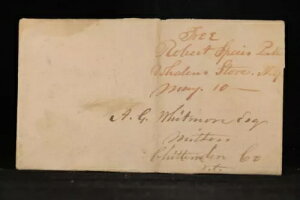 Free
Robert Speirs
Whalens Store, 
May 10 —
A. G. Whitmore Esq
Milton
Chittenden Co